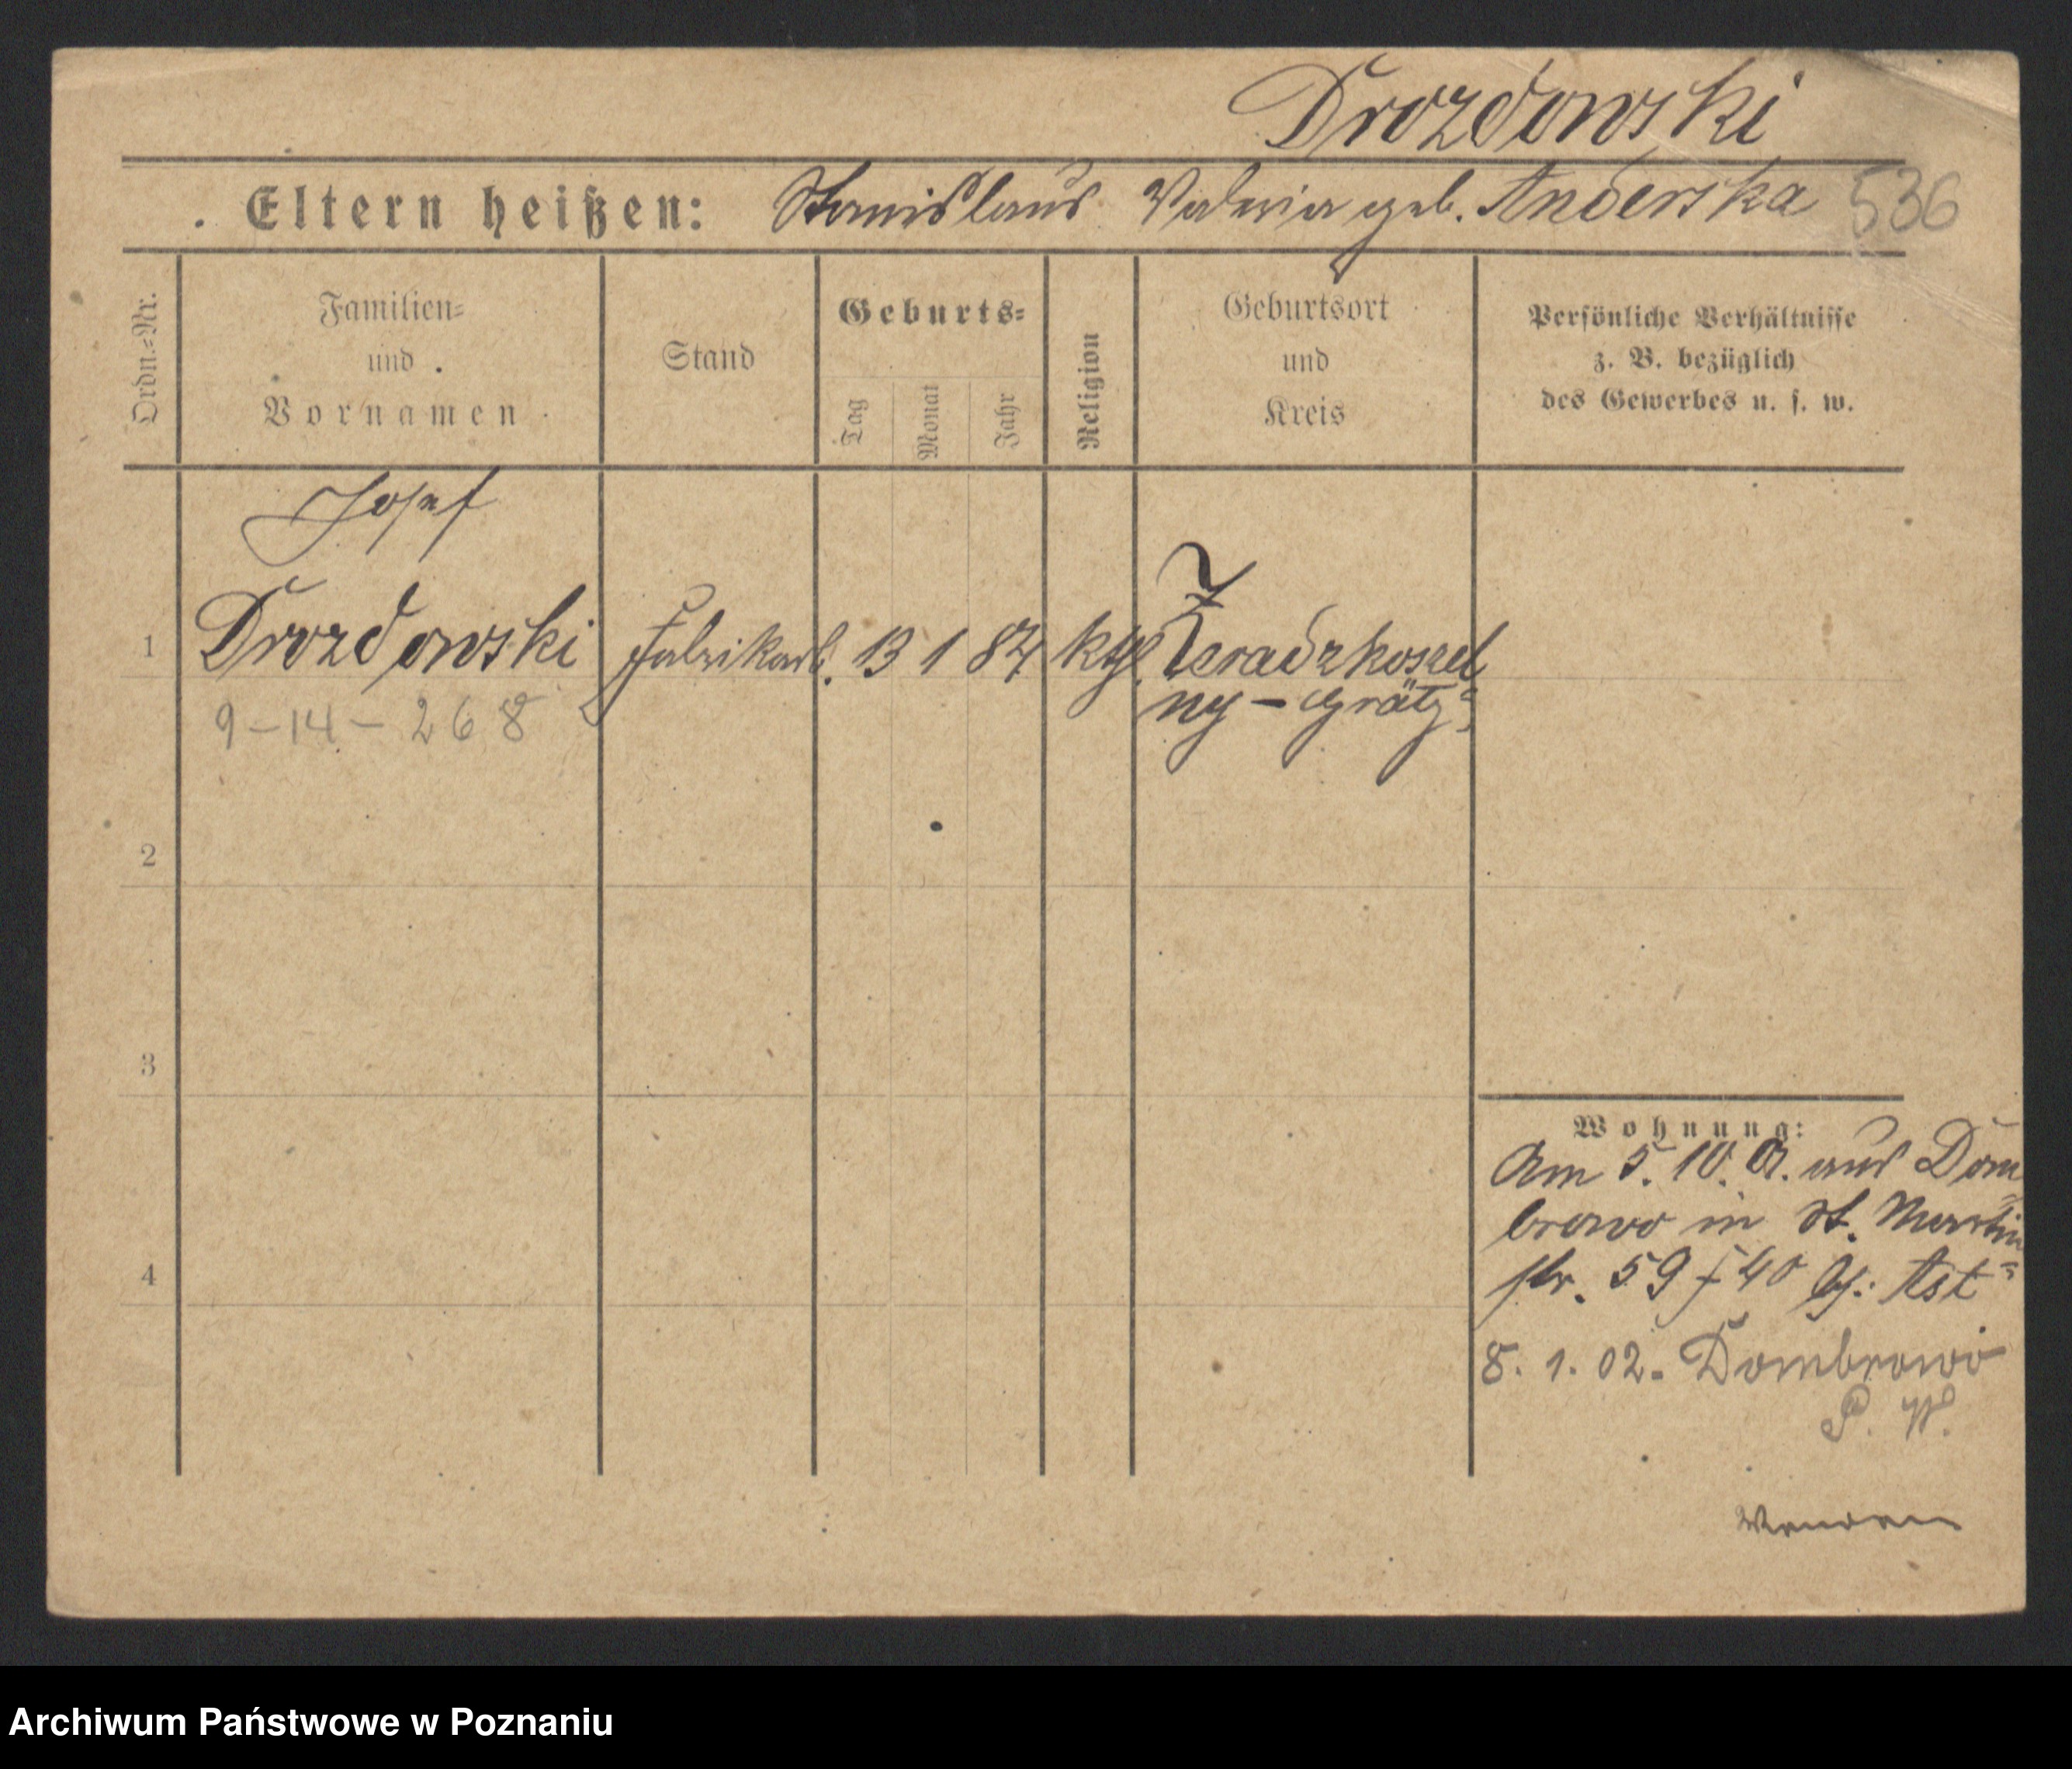 Drozdowski
Eltern heißen: Stanislaus Valeria geb. Anderska 536
Ordn.=Nr.
Familien=
und
Vornamen
Stand
Geburts=
Tag
Monat
Jahr
Religion
Geburtsort
und
Kreis
Persönliche Verhältnisse
z. B. bezüglich
des Gewerbes u. s. w.
Josef
1 Drozdowski Fabrikarb. 13 1 84 kth.
ny - Grätz
9-14-268
2
3
4
Wohnung:
Am 5. 10. 01. aus Dom
browo in St. Martin
str. 59/40 b/:
8. 1. 02. Dombrowo
P. W.
Wenden
Archiwum Państwowe w Poznaniu